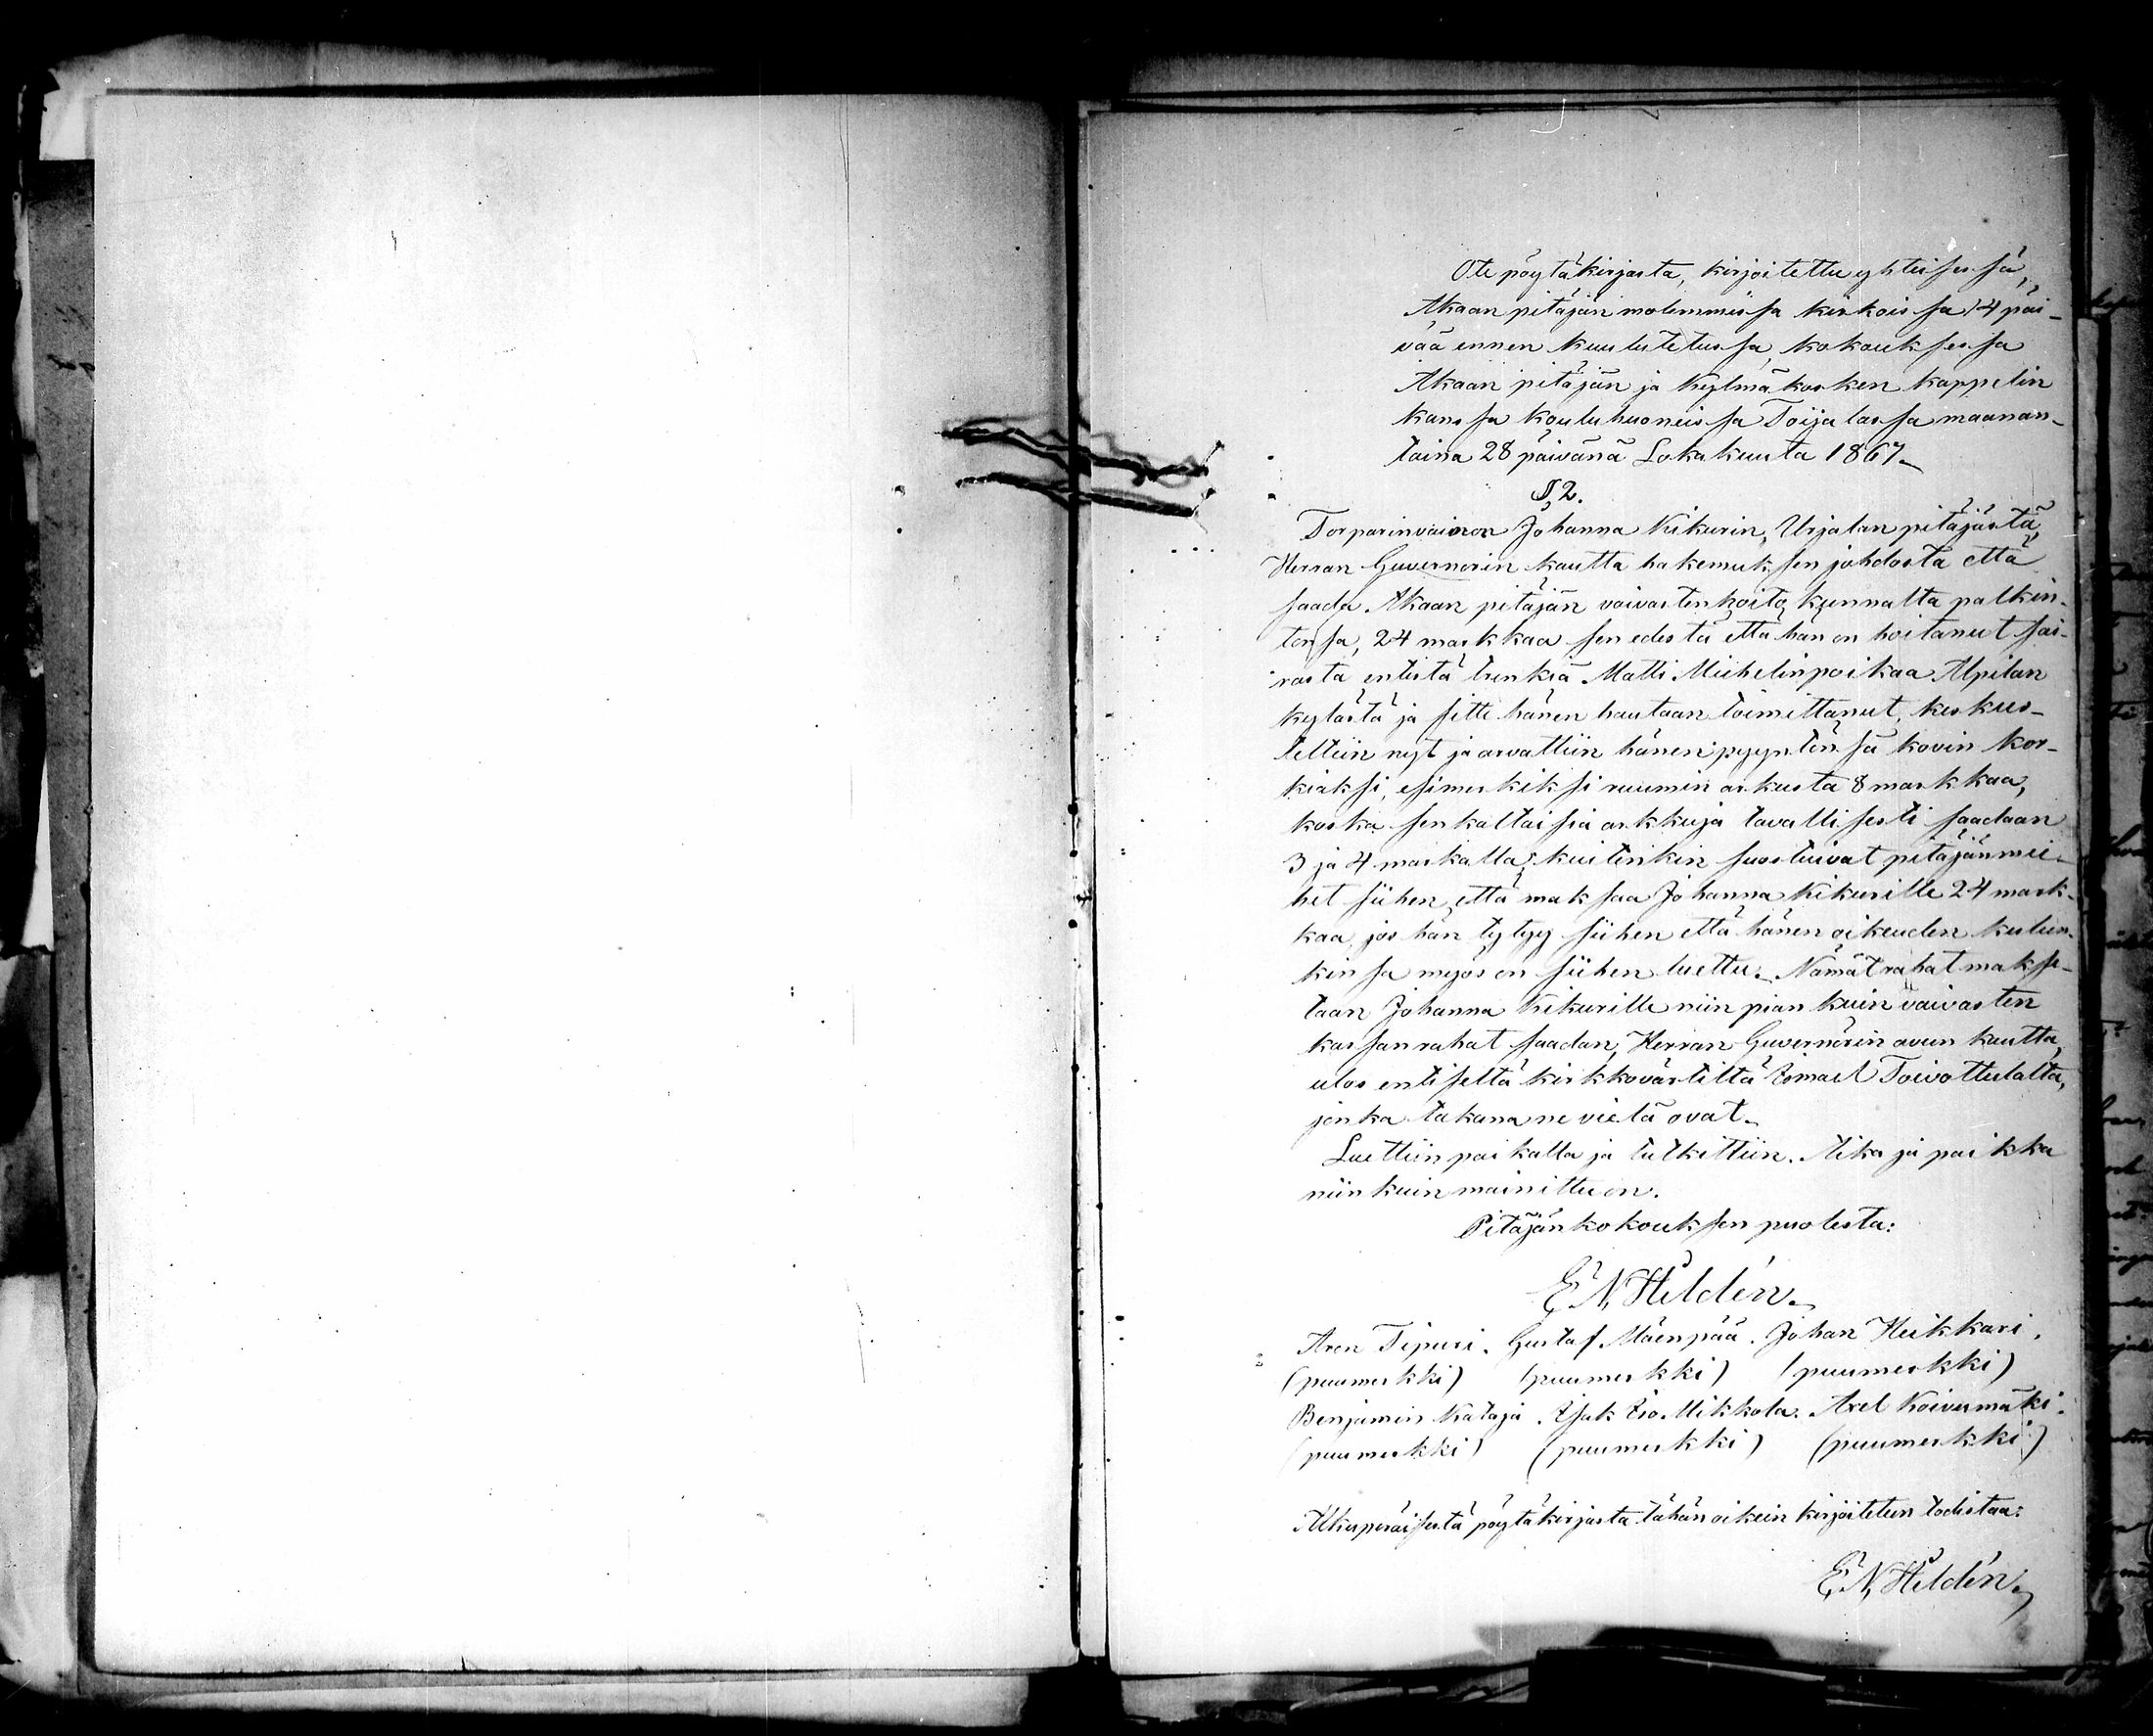 Ote pöytäkirjasta, kirjoitettu yhteisessä,
Akaan pitäjän molemmissa kirkoissa 14 päi-
vää ennen kuulutetussa, kokouksessa
Akaan pitäjän ja Kylmäkosken kappelin
kanssa kouluhuoneissa Toijalassa maanan-
taina 28 päivänä Lokakuuta 1867.
§ 2.
Torparinvaimon Johanna Kikurin, Urjalan pitäjästä,
Herran Guvernörin kautta hakemuksen johdosta että
saada Akaan pitäjän vaivastenhoitokunnalta palkin-
tonsa, 24 markkaa sen edestä että hän on hoitanut sai-
rasta entistä trenkiä Matti Michelinpoikaa Alpilan
kylästä ja sitte hänen hautaan toimittanut, keskus-
teltiin nyt ja arvattiin hänen pyyntönsä kovin kor-
kiaksi, esimerkiksi ruumin arkusta 8 markkaa,
koska senkaltaisia arkkuja tavallisesti saadaan
3 ja 4 markalla; kuitenkin suostuivat pitäjänmie-
het siihen, että maksaa Johanna Kikurille 24 mark-
kaa, jos hän tytyy siihen että hänen oikeuden kulun-
kinsa myös on siihen luettu. Nämät rahat makse-
taan Johanna Kikurille niin pian kuin vaivasten
kassan rahat saadan, Herran Guvernörin avun kautta,
ulos entiseltä kirkkovärtiltä Esmael Toivottulalta,
jonka takana ne vielä ovat.
Luettiin paikalla ja tutkittiin. Aika ja paikka
niinkuin mainittu on.
Pitäjänkokouksen puolesta:
E. N. Hildén.
Aron Tipuri. Gustaf Mäenpää. Johan Heikkari.
(puumerkki) (puumerkki) (puumerkki)
Benjamin Kataja. Esak Iso Mikkola. Axel Koivumäki.
(puumerkki) (puumerkki) (puumerkki)
Alkuperäisestä pöytäkirjasta tähän oikein kirjoitetun todistaa:
E. N. Hildén.